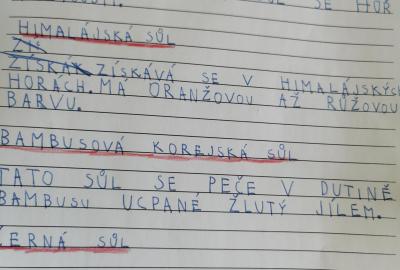 SE HOR
HIMALÁJSKÁ SŮL
ZÍSKÁVÁ SE V HIMALÁJSKÝCH
HORÁCH. MÁ ORANŽOVOU AŽ RŮŽOVOU
BARVU.
BAMBUSOVÁ KOREJSKÁ SŮL
TATO SŮL SE PEČE V DUTINĚ
BAMBUSU UCPANÉ ŽLUTÝ JÍLEM.
ČERNÁ SŮL